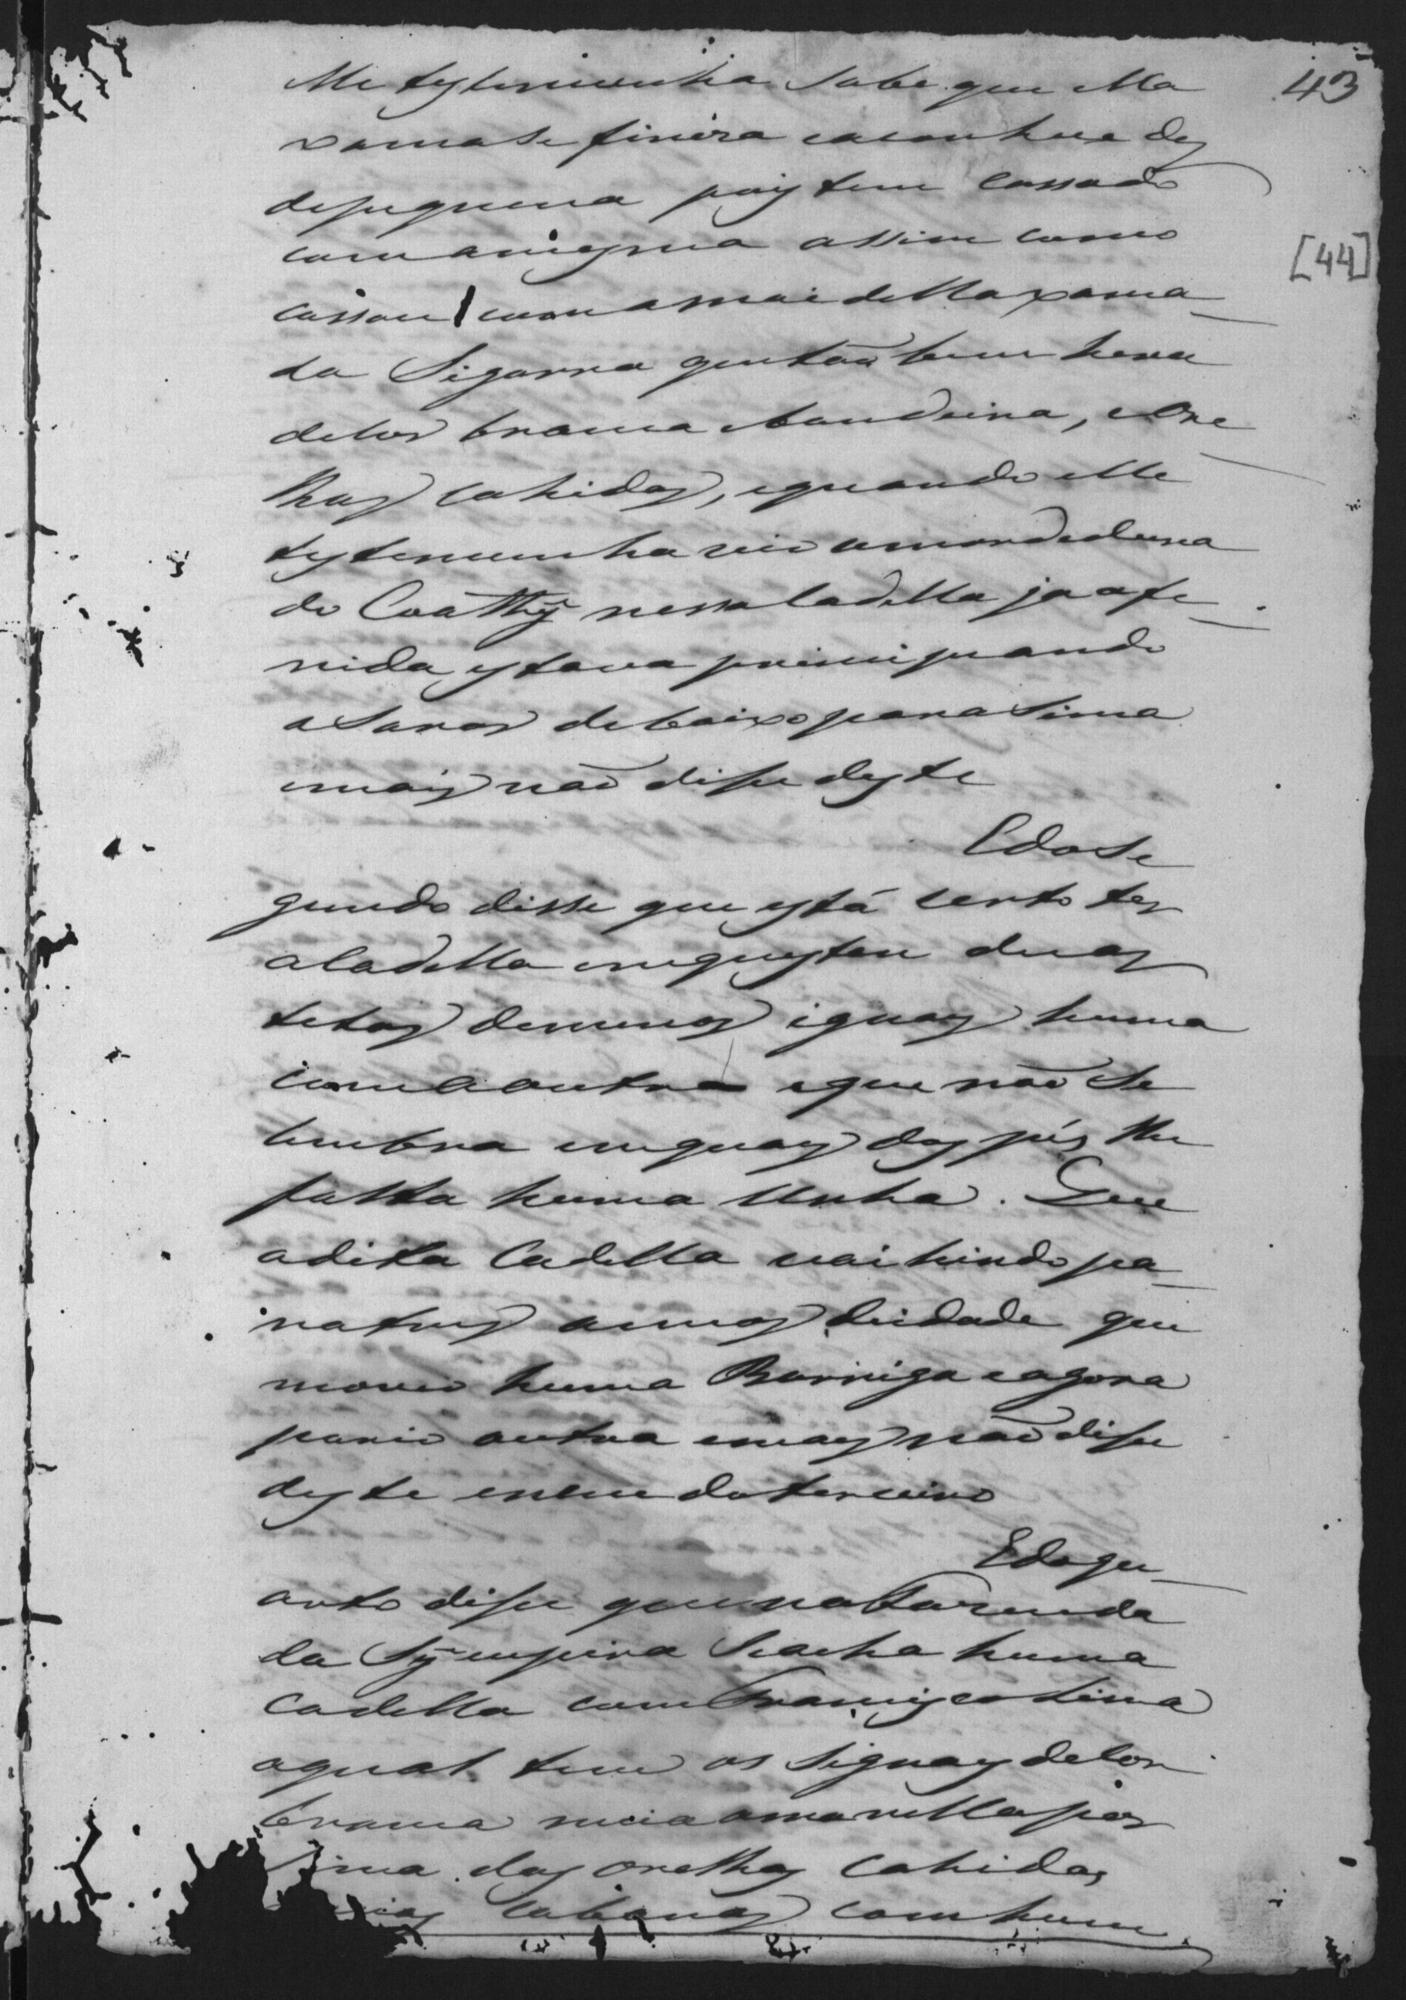 43
[44]
elle testemunha sabe que ella
xamase finira e aconhece des
depequena pois tem cassado
com amesma assim como
cassou com a mai della xama
da Sigarra que taõ bem hera
de cor branca bandeira, e ore
lhas cahidas, e quando elle
testemunha vio a mordedura
do Coathy nessa cadella ja afe
rida estava prinsipiando
a sarar debaixo para sima
e mais naõ disse deste
E do Se
gundo disse que está serto ter
a cadella em questou duas
tetas demenos iguas huma
com a outra e que naõ se
lembra em quas dos pés lhe
falta huma Unha. Que
a dita Cadella vai hindo pa
ra tres annos deidade que
moveo huma Barriga e agora
pario outra e mais naõ disse
deste e nem do terceiro
E do qu
arto disse que na Fazenda
da Sy̆mpira se acha huma
cadella com Francisco Lima
a qual tem os signaes de cor
branca meia amarella por
sima das orelhas cahidas
cabanas com hum